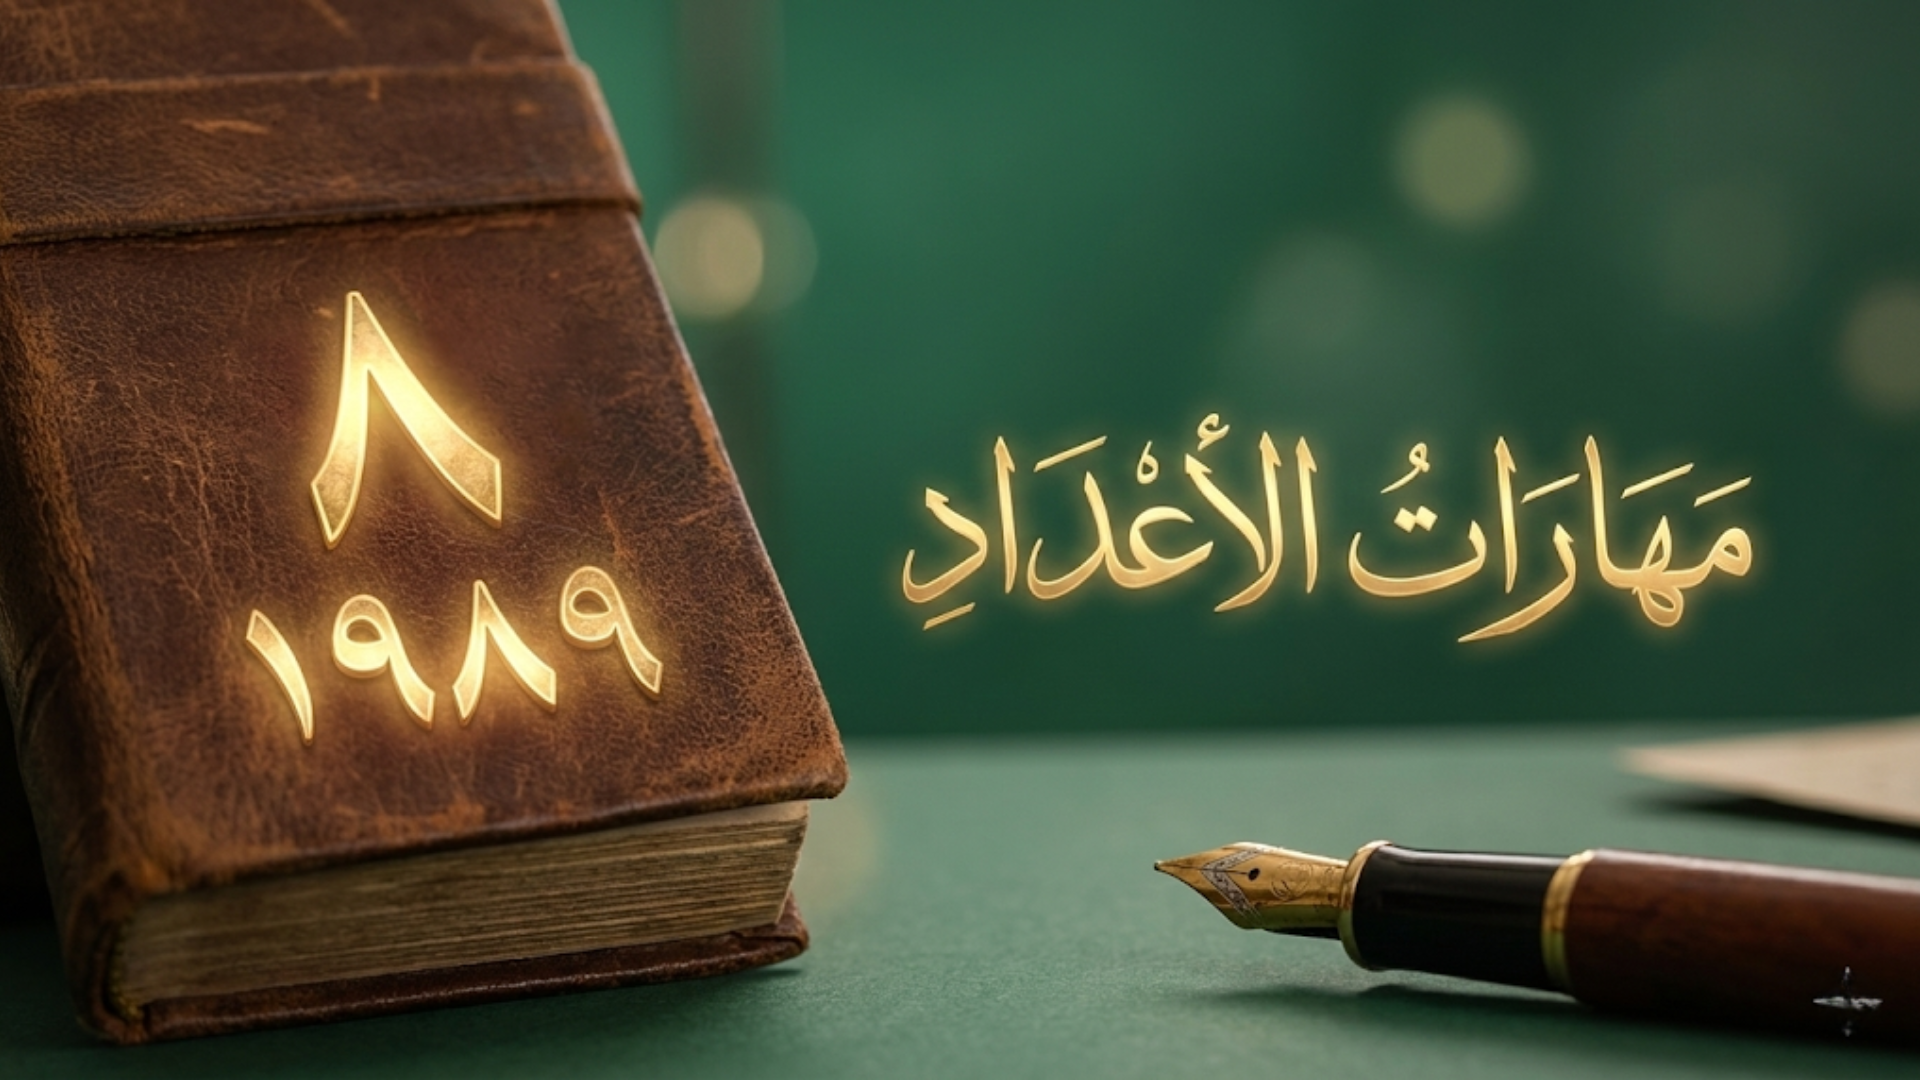 ٨
١٩٨٩
مَهَارَاتُ الأَعْدَادِ